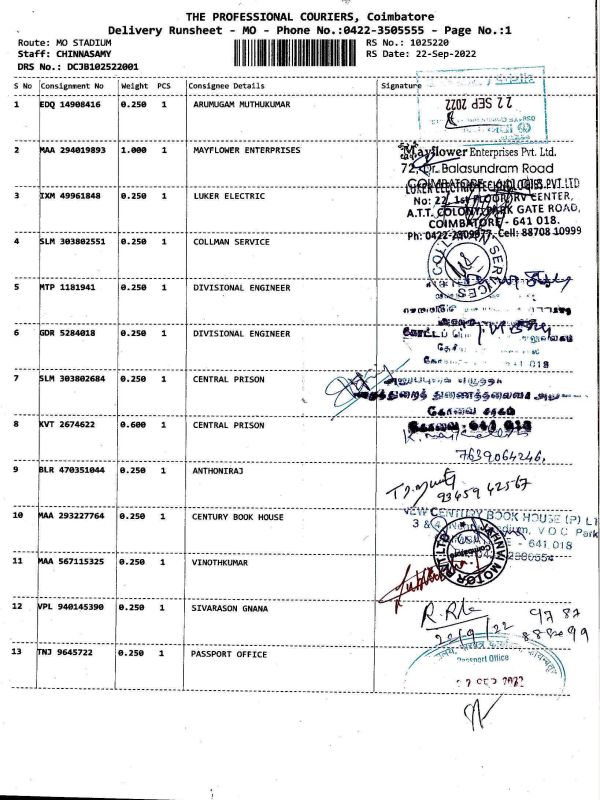 THE PROFESSIONAL COURIERS, Coimbatore
Delivery Runsheet - MO - Phone No.:0422-3505555 - Page No.:1
Route: MO STADIUM RS No.: 1025220
Staff: CHINNASAMY RS Date: 22-Sep-2022
DRS No.: DCJB102522001
S No Consignment No Weight PCS Consignee Details Signature
1 EDQ 14908416 0.250 1 ARUMUGAM MUTHUKUMAR
22 SEP 2022
2 MAA 294019893 1.000 1 MAYFLOWER ENTERPRISES
Mayflower Enterprises Pvt. Ltd.
72, Dr. Balasundram Road
3 IXM 49961848 0.250 1 LUKER ELECTRIC
LUKER ELECTRIC TECHNOLOGIES PVT LTD
No: 22, 1st FLOOR, RV CENTER,
A.T.T. COLONY, PARK GATE ROAD,
COIMBATORE - 641 018.
Ph: 0422-2909977, Cell: 88708 10999
4 SLM 303802551 0.250 1 COLLMAN SERVICE
COLLMAN SERVICES
5 MTP 1181941 0.250 1 DIVISIONAL ENGINEER
6 GDR 5284018 0.250 1 DIVISIONAL ENGINEER
7 SLM 303802684 0.250 1 CENTRAL PRISON
கோவை சரகம்
கோவை - 641 018
8 KVT 2674622 0.600 1 CENTRAL PRISON
7639064246.
9 BLR 470351044 0.250 1 ANTHONIRAJ
93459 42567
10 MAA 293227764 0.250 1 CENTURY BOOK HOUSE
NEW CENTURY BOOK HOUSE (P) LT
V O C Park
- 641 018
11 MAA 567115325 0.250 1 VINOTHKUMAR
JAHNVI MOTOR PVT LTD
12 VPL 940145390 0.250 1 SIVARASON GNANA
22/9/22
13 TNJ 9645722 0.250 1 PASSPORT OFFICE
Passport Office